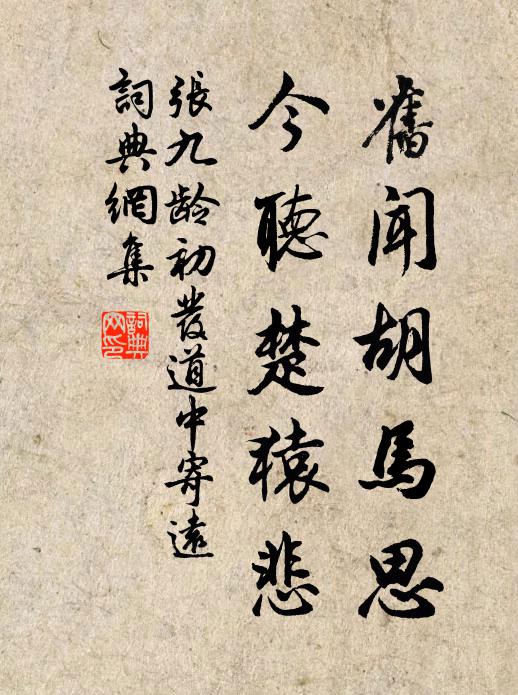 舊聞胡馬思
今聽楚猿悲
張九齡初發道中寄遠
詞典網集
詞典網印